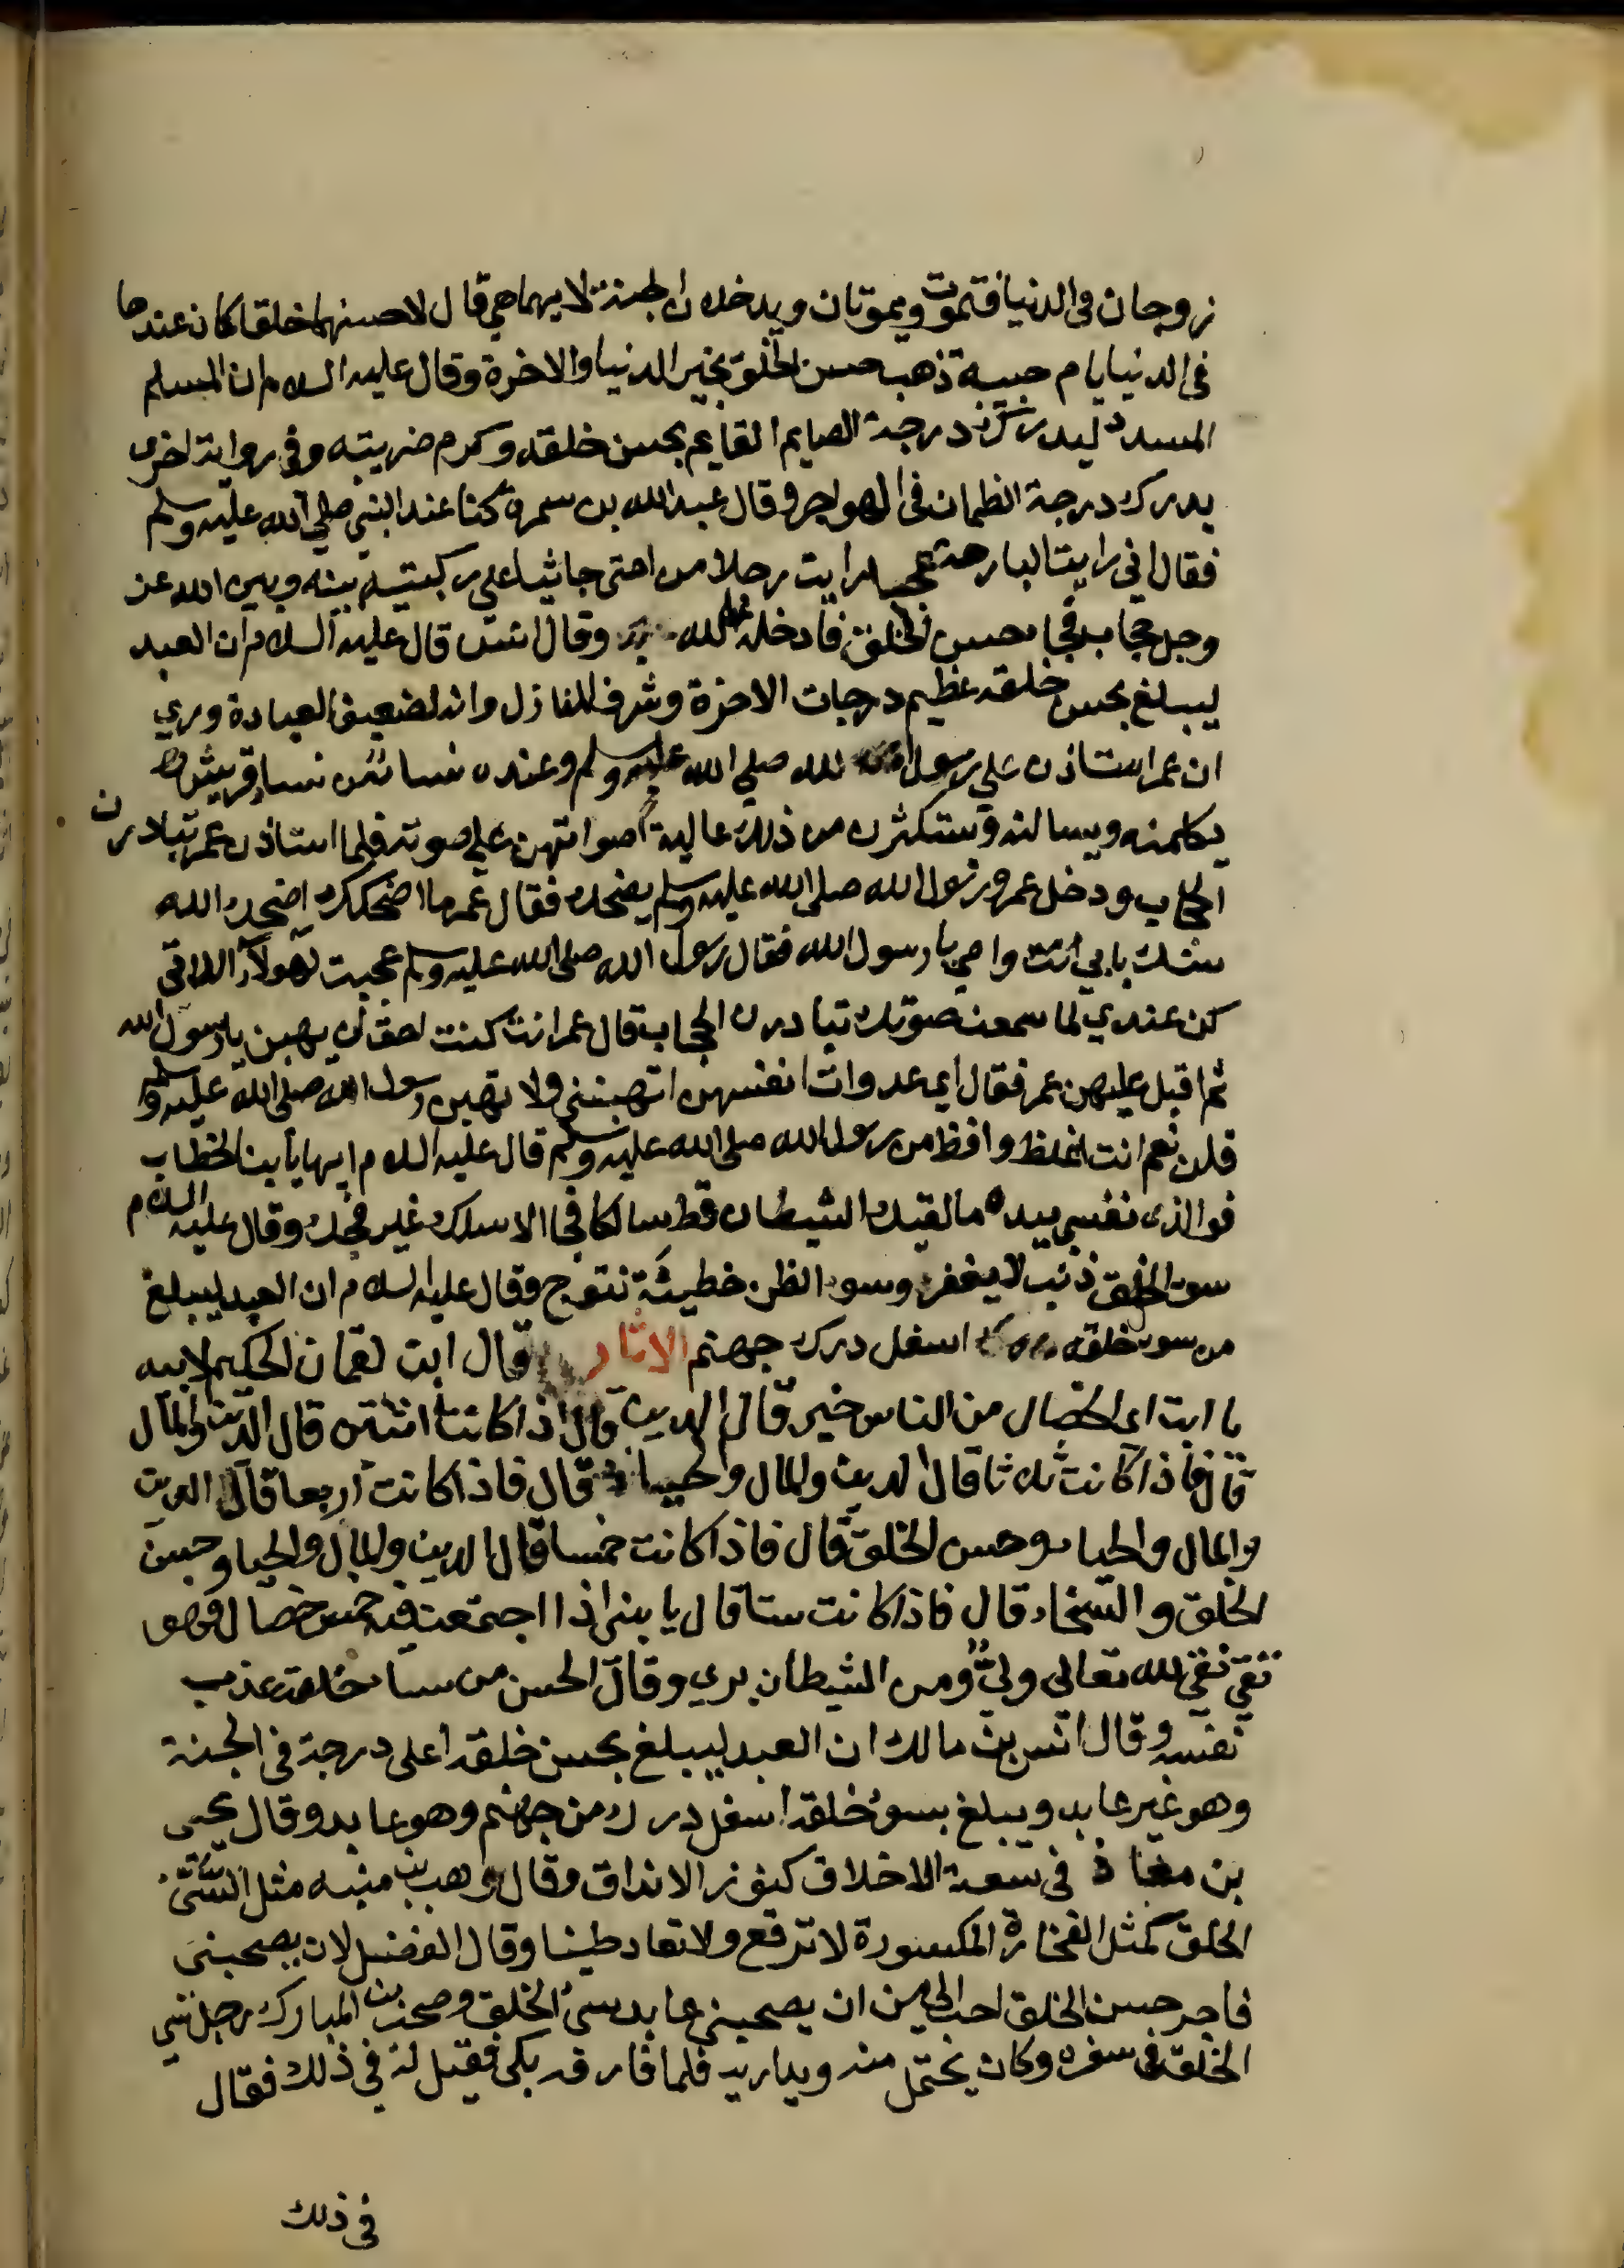 زوجان فى الدنيا فتموت ويموتان ويدخلان الجنة لايهما هي قال لاحسنهما خلقا كان عندها
فى الدنيا يا ام حبيبة ذهب حسن الخلق بخير الدنيا والاخرة وقال عليه السلام ان المسلم
المسدد ليدرك درجة الصايم القايم بحسن خلقه وكرم ضريبته وفى رواية اخرى
يدرك درجة الظمان فى الهواجر وقال عبد الله بن سمرة كنا عند النبي صلي الله عليه وسلم
فقال اني رايت البارحة عجبا رايت رجلا من امتى جاثيا على ركبتيه بينه وبين الله عز
وجل حجاب فجا حسن الخلق فادخله على الله وقال انس قال عليه السلام ان العبد
ليبلغ بحسن خلقه عظيم درجات الاخرة وشرف المنازل وانه لضعيف العبادة وروي
ان عمر استاذن علي رسول الله صلي الله عليه وسلم وعنده نسا من نسا قريش
يكلمنه ويسالنه ويستكثرن من ذلك عالية اصواتهن علي صوته فلما استاذن عمر تبادرن
الحجاب ودخل عمر ورسول الله صلى الله عليه وسلم يضحك فقال عمر ما اضحكك اضحك الله
سنك بابي انت وامي يا رسول الله فقال رسول الله صلى الله عليه وسلم عجبت لهولآ اللاتي
كن عندي لما سمعن صوتك تبادرن الحجاب قال عمر انت كنت احق ان يهبن يا رسول الله
ثم اقبل عليهن عمر فقال اي عدوات انفسهن اتهبنني ولا تهبن رسول الله صلى الله عليه وسلم
قلن نعم انت اغلظ وافظ من رسول الله صلى الله عليه وسلم قال عليه السلام ايها يا بن الخطاب
فوالذى نفسي بيده ما لقيك الشيطان قط سالكا فجا الا سلك غير فجك وقال عليه السلام
سو الخلق ذنب لا يغفر وسو الظن خطيئة تنتوج وقال عليه السلام ان العبد ليبلغ
من سو خلقه اسفل درك جهنم الاثار قال ابن لقمان الحكيم لابيه
يا ابت اى الخصال من الناس خير قال الدين قال اذا كانتا اثنتين قال الدين والمال
قال فاذا كانت ثلاثا قال الدين والمال والحيا قال فاذا كانت اربعا قال الدين
والمال والحيا وحسن الخلق قال فاذا كانت خمسا قال الدين والمال والحيا وحسن
الخلق والسخاء قال فاذا كانت ستا قال يا بنى اذا اجتمعت فيه خمس خصال فهو
تقي نقي لله تعالى ولي ومن الشيطان بري وقال الحسن من سا خلقه عذب
نفسه وقال انس بن مالك ان العبد ليبلغ بحسن خلقه اعلى درجة في الجنة
وهو غير عابد ويبلغ بسو خلقه اسفل درك من جهنم وهو عابد وقال يحيى
بن معاذ في سعة الاخلاق كنوز الارزاق وقال وهب بن منبه مثل السئ
الخلق كمثل الفخارة المكسورة لا ترقع ولا تعاد طينا وقال الفضيل لان يصحبني
فاجر حسن الخلق احب الي من ان يصحبني عابد سئ الخلق وصحب بن المبارك رجل سيئ
الخلق فى سفره وكان يحتمل منه ويداريه فلما فارقه بكى فقيل له في ذلك فقال
فى ذلك